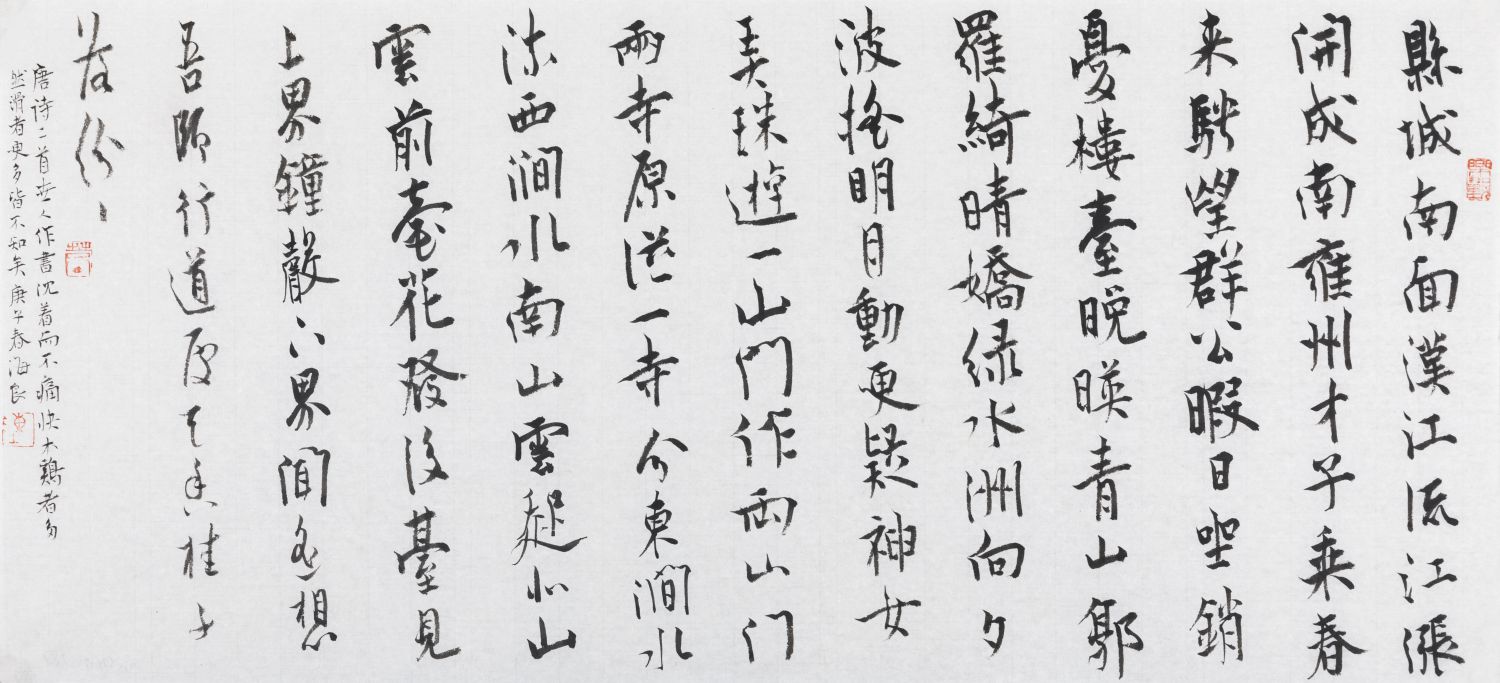 縣城南面漢江流江漲
開成南雍州才子乘春
来騁望群公暇日坐銷
憂樓臺晚映青山郭
羅綺晴嬌绿水洲向夕
波搖明月動更疑神女
弄珠遊一山門作兩山门
兩寺原從一寺分東澗水
流西澗水南山雲起北山
雲前臺花發後臺見
上界鐘聲下界聞遙想
吾師行道處天香桂子
落紛〻
唐诗二首世人作書沉着而不痛快木鷄者多
然滑者更多皆不知矣庚子春海良